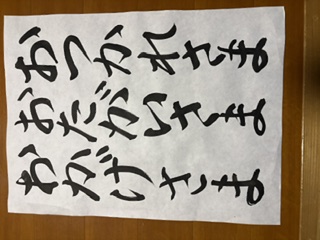 おつかれさま
おたがいさま
おかげさま